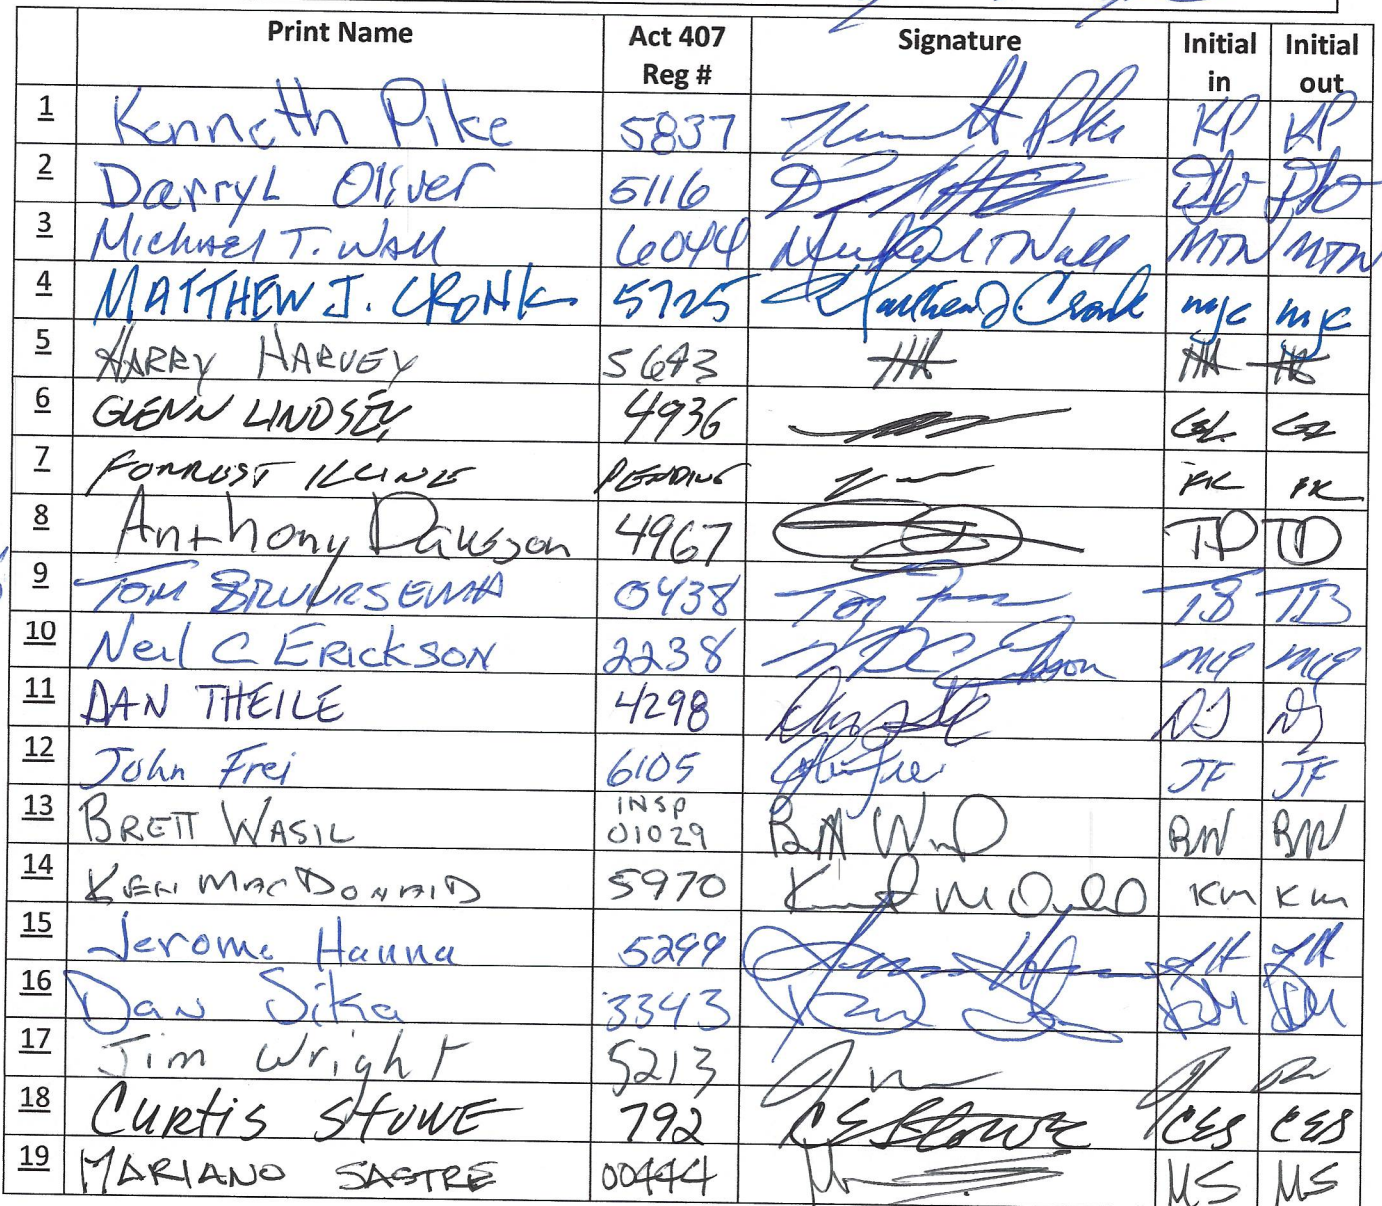 Print Name Act 407 Reg # Signature Initial in Initial out
1 Kenneth Pike 5837 Kenneth Pike KP KP
2 Darryl Oliver 5116
3 Michael T. Wall 6044 Michael T Wall MTW MTW
4 MATTHEW J. CRONK 5725 Matthew J Cronk mjc mjc
5 HARRY HARVEY 5643 HH HH HH
6 GLENN LINDSEY 4936 GL GL
7 FORREST PENDING FK FK
8 Anthony Dawson 4967 TD TD
9 TOM 0438 TB TB
10 Neil C ERICKSON 2238
11 DAN THEILE 4298 DT DT
12 John Frei 6105 John Frei JF JF
13 BRETT WASIL INSP 01029 BW BW
14 KEN MACDONALD 5970 KM KM
15 Jerome Hanna 5299 JH JH
16 Dan Sika 3343
17 Jim Wright 5213
18 Curtis STOWE 792 CE Stowe CES CES
19 MARIANO SASTRE 00444 MS MS